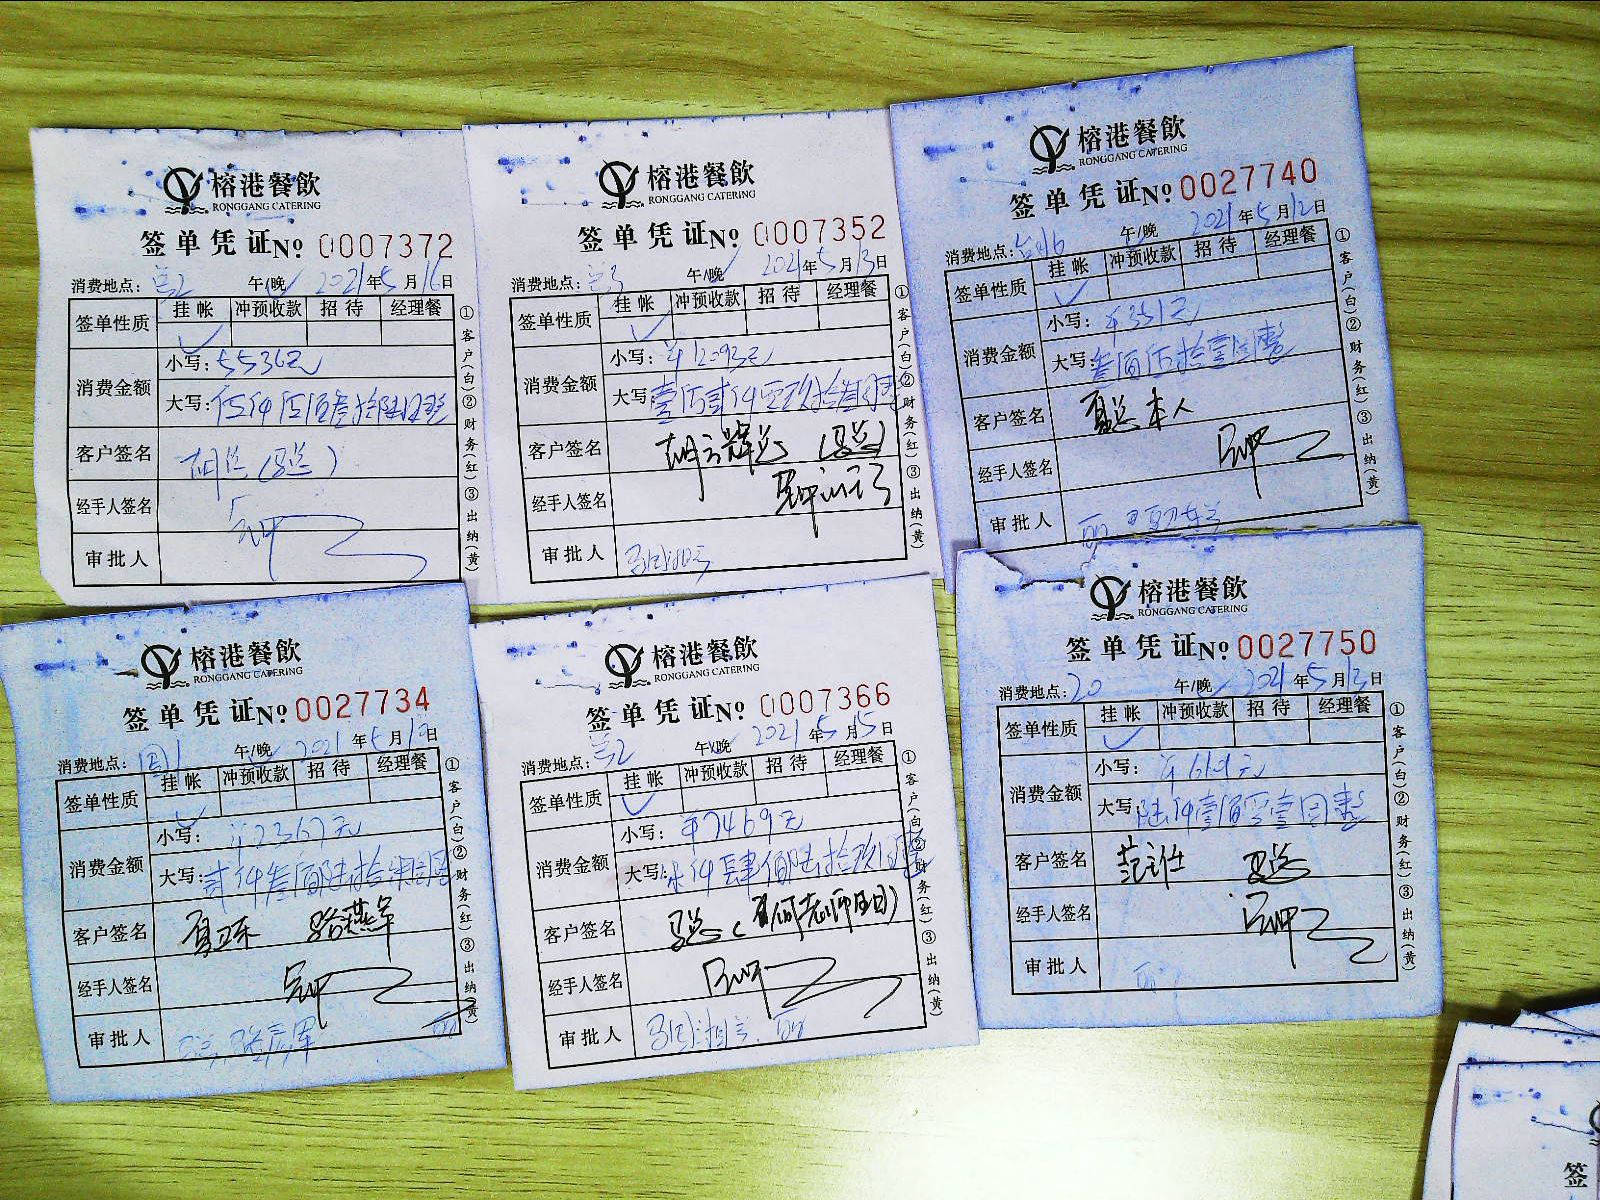 榕港餐飲
RONGGANG CATERING
签单凭证№ 0007372
消费地点: 午/晚 2021年5月16日
签单性质 挂帐 冲预收款 招待 经理餐
消费金额 小写: 5536元
大写: 伍仟伍佰叁拾陆圆整
客户签名 胡总(马总)
经手人签名
审批人
①客户(白)②财务(红)③出纳(黄)
榕港餐飲
RONGGANG CATERING
签单凭证№ 0007352
消费地点: 午/晚 2021年5月13日
签单性质 挂帐 冲预收款 招待 经理餐
消费金额 小写: ¥12093元
大写: 壹万贰仟零玖拾叁圆整
客户签名 胡 辉总 (马总)
经手人签名
审批人
①客户(白)②财务(红)③出纳(黄)
榕港餐飲
RONGGANG CATERING
签单凭证№ 0027740
消费地点: 午/晚 2021年5月12日
签单性质 挂帐 冲预收款 招待 经理餐
消费金额 小写: ¥351元
大写: 叁佰伍拾壹圆整
客户签名 夏总本人
经手人签名
审批人
①客户(白)②财务(红)③出纳(黄)
榕港餐飲
RONGGANG CATERING
签单凭证№ 0027734
消费地点: 午/晚 2021年5月 日
签单性质 挂帐 冲预收款 招待 经理餐
消费金额 小写: ¥2367元
大写: 贰仟叁佰陆拾柒圆整
客户签名
经手人签名
审批人
①客户(白)②财务(红)③出纳(黄)
榕港餐飲
RONGGANG CATERING
签单凭证№ 0007366
消费地点: 午/晚 2021年5月15日
签单性质 挂帐 冲预收款 招待 经理餐
消费金额 小写: ¥7469元
大写: 柒仟肆佰陆拾玖圆整
客户签名 马总(夏何老师 )
经手人签名
审批人
①客户(白)②财务(红)③出纳(黄)
榕港餐飲
RONGGANG CATERING
签单凭证№ 0027750
消费地点: 20 午/晚 2021年5月13日
签单性质 挂帐 冲预收款 招待 经理餐
消费金额 小写: ¥6101元
大写: 陆仟壹佰零壹圆整
客户签名 范主任 马总
经手人签名
审批人
①客户(白)②财务(红)③出纳(黄)
签